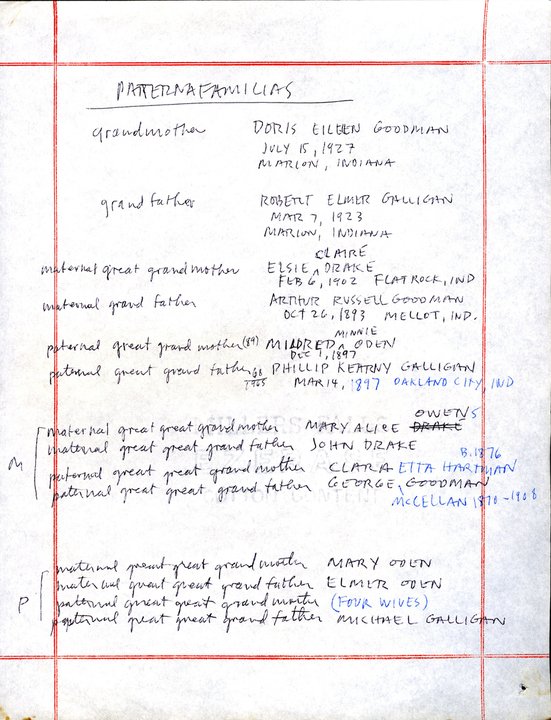 PATTERNAFAMILIAS
grandmother DORIS EILEEN GOODMAN
JULY 15, 1927
MARION, INDIANA
grandfather ROBERT ELMER GALLIGAN
MAR 7, 1923
MARION, INDIANA
CLAIRE
maternal great grandmother ELSIE ^ DRAKE
FEB 6, 1902 FLATROCK, IND
maternal grand father ARTHUR RUSSELL GOODMAN
OCT 26, 1893 MELLOT, IND.
MINNIE
paternal great grand mother (89) MILDRED ^ ODEN
DEC 1, 1897
paternal great grand father 68 PHILLIP KEARNY GALLIGAN
1965 MAR 14, 1897 OAKLAND CITY, IND
OWENS
maternal great great grandmother MARY ALICE DRAKE
maternal great great grand father JOHN DRAKE
B. 1876
M paternal great great grand mother CLARA ETTA HARTMAN
paternal great great grand father GEORGE ^ GOODMAN
McCELLAN 1870-1908
maternal great great grand mother MARY ODEN
maternal great great grand father ELMER ODEN
P paternal great great grand mother (FOUR WIVES)
paternal great great grand father MICHAEL GALLIGAN